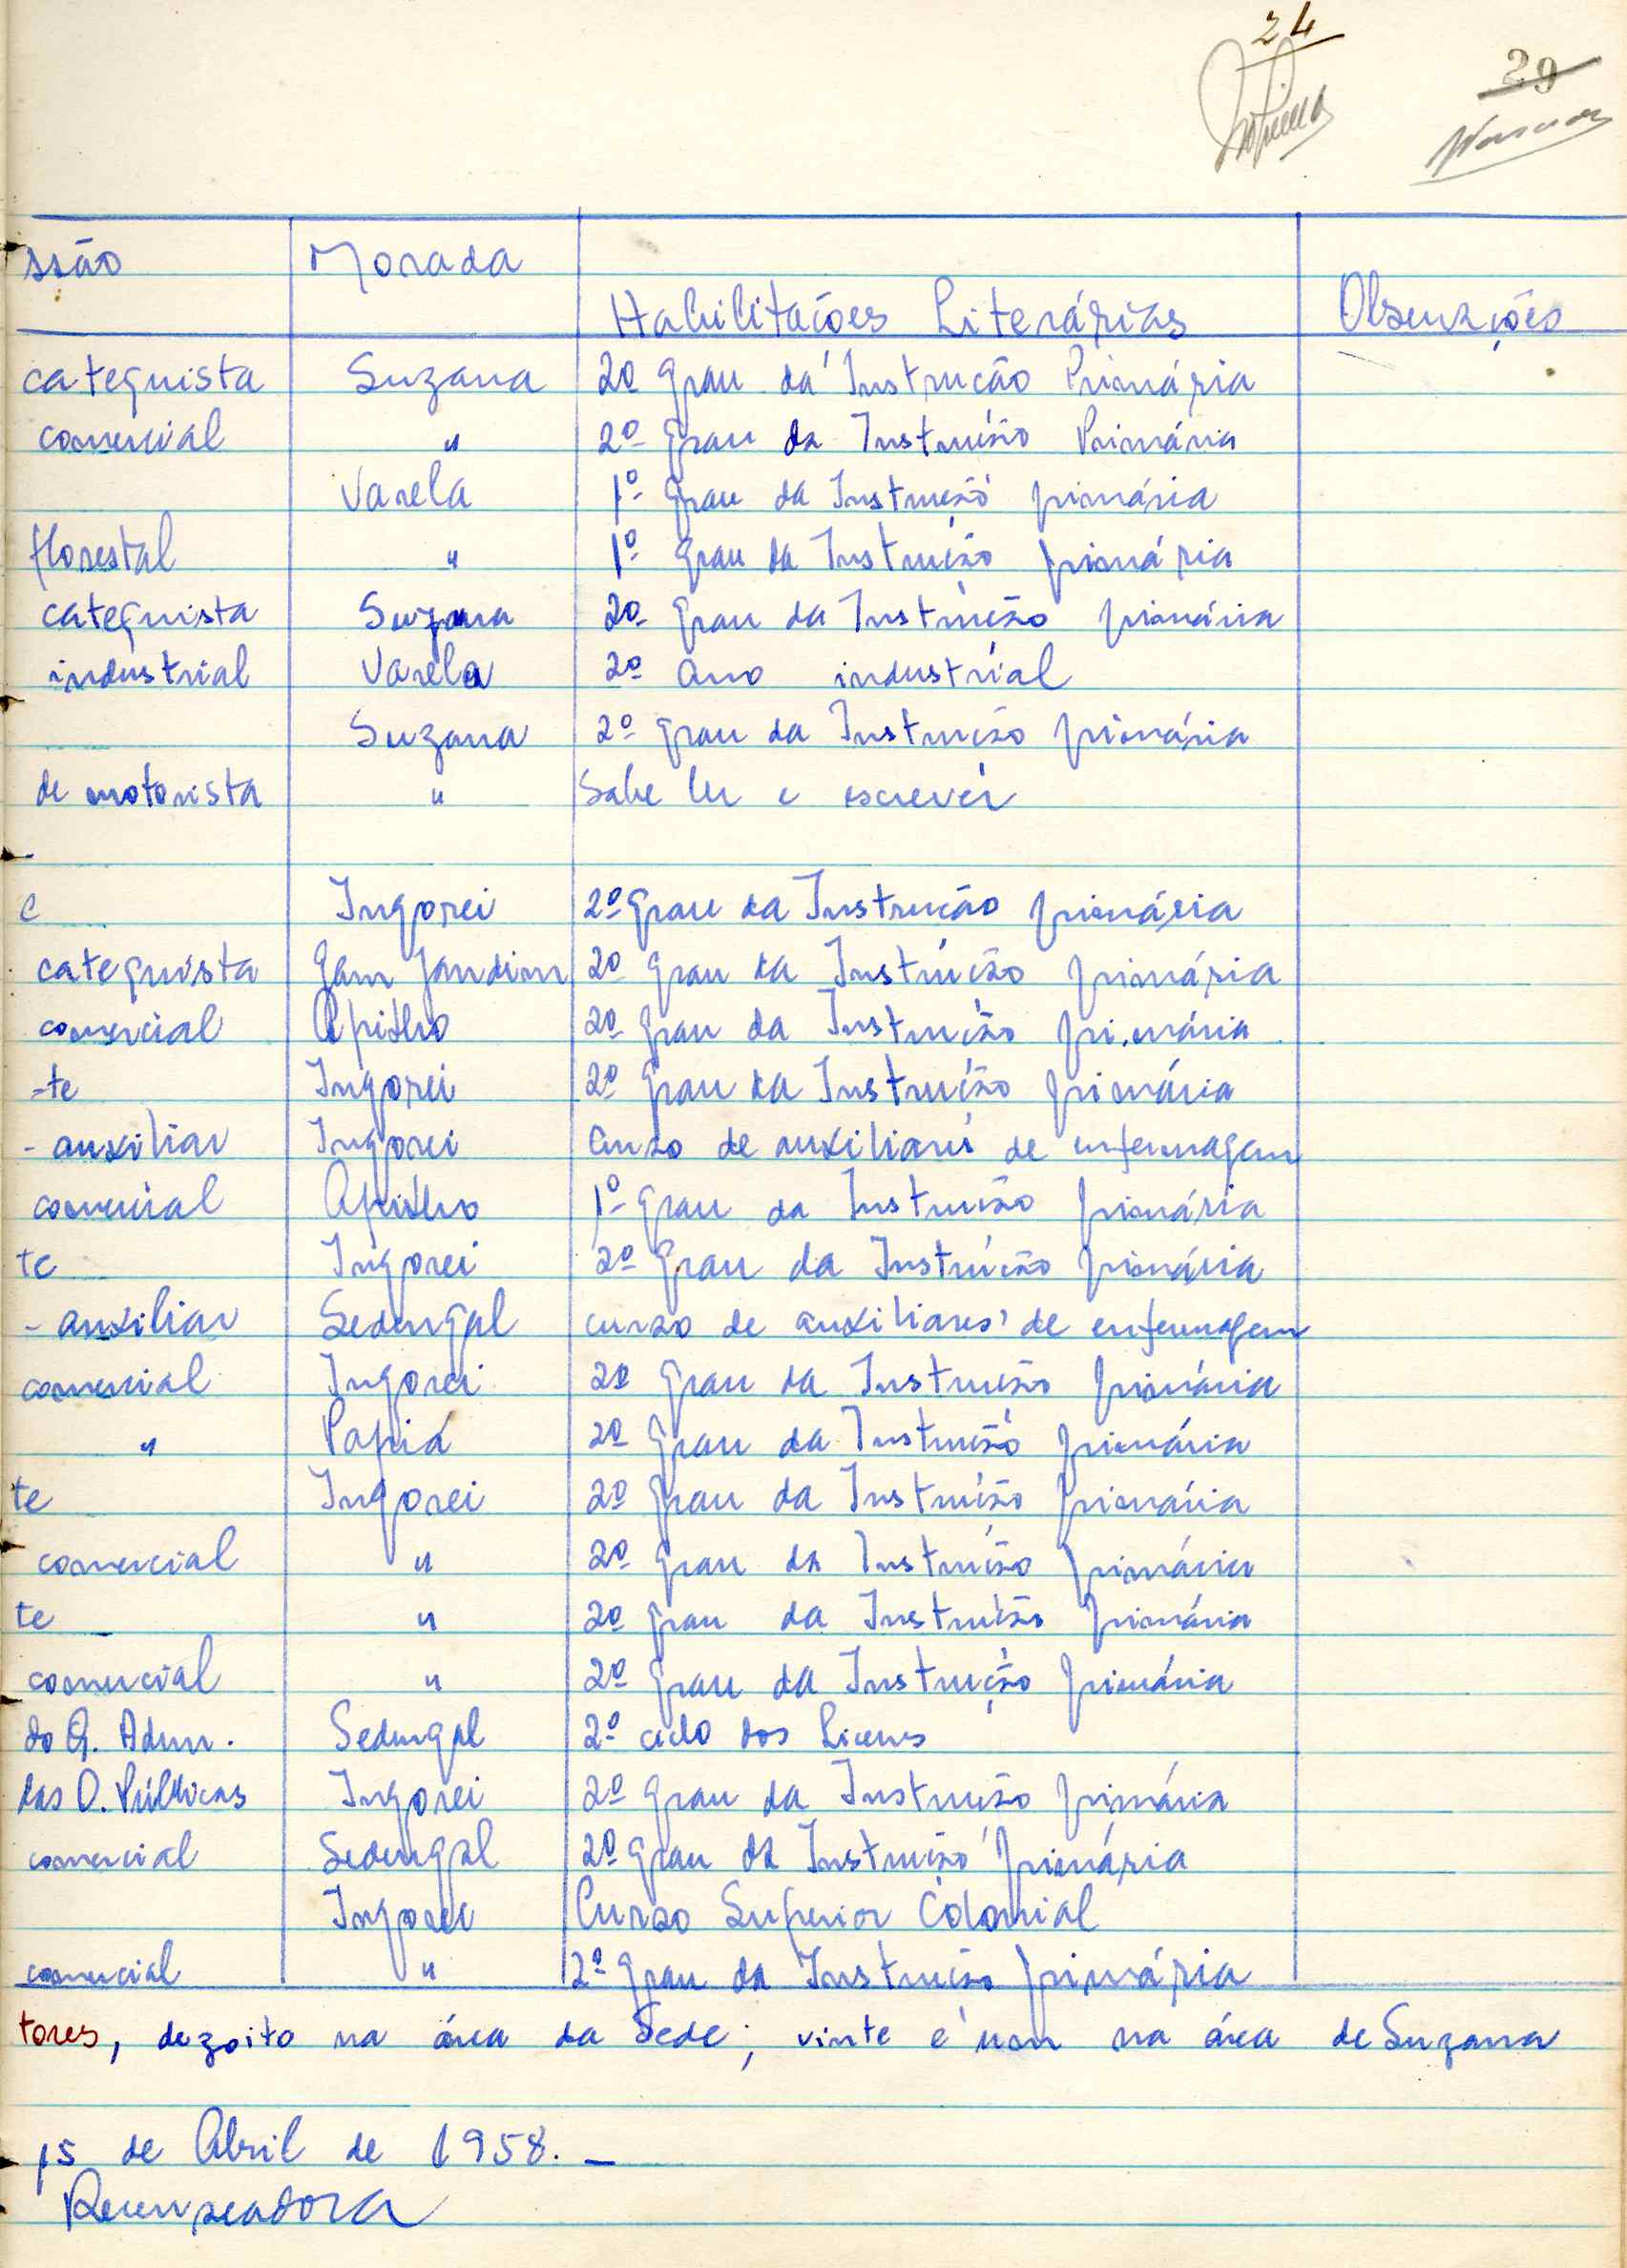 24
29
ssão Morada
Habilitações Literárias Observações
catequista Suzana 2º Grau da Instrução Primária
comercial " 2º Grau da Instrução Primária
Varela 1º Grau da Instrução primária
florestal " 1º Grau da Instrução primária
catequista Suzana 2º Grau da Instrução primária
industrial Varela 2º ano industrial
Suzana 2º Grau da Instrução primária
de motorista " Sabe ler e escrever
Ingorei 2º Grau da Instrução primária
catequista Gam Jandim 2º Grau da Instrução primária
comercial Apilho 2º Grau da Instrução primária
-te Ingorei 2º Grau da Instrução primária
- auxiliar Ingorei Curso de auxiliares de enfermagem
comercial Apilho 1º Grau da Instrução primária
te Ingorei 2º Grau da Instrução primária
- auxiliar Sedengal curso de auxiliares de enfermagem
comercial Ingorei 2º Grau da Instrução primária
" Papiá 2º Grau da Instrução primária
te Ingorei 2º Grau da Instrução primária
comercial " 2º Grau da Instrução primária
te " 2º Grau da Instrução primária
comercial " 2º Grau da Instrução primária
do Q. Adm. Sedengal 2º ciclo dos Liceus
das O. Públicas Ingorei 2º Grau da Instrução primária
comercial Sedengal 2º Grau da Instrução primária
Ingorei Curso Superior Colonial
comercial " 2º Grau da Instrução primária
tores, dezoito na área da Sede; vinte e um na área de Suzana
15 de Abril de 1958. _
Recenseadora